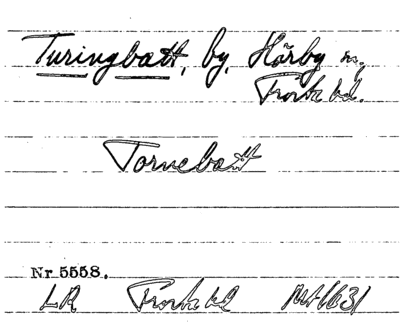 Turingbatt, by, Hörby sn,
Frosta hd.
Tornebatt
Nr 5558.
LR Frosta hd 1631